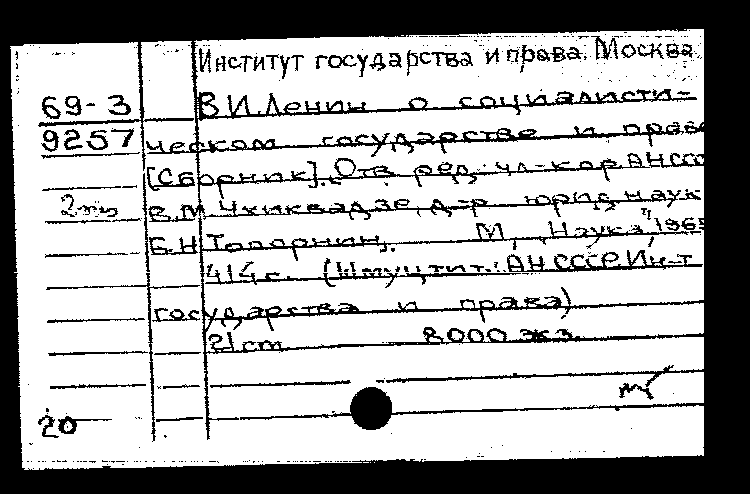 Институт государства и права. Москва
69-3 В.И.Ленин о социалисти-
9257 ческом государстве и праве
[Сборник]. Отв. ред.: чл-кор АН СССР
2 экз В.М. Чхиквадзе, д-р юрид. наук
Б.Н Топорнин. М., „Наука", 1969
414 с. (Шмуцтит.: АН СССР. Ин-т
государства и права)
21 cm 8.000 экз.
20